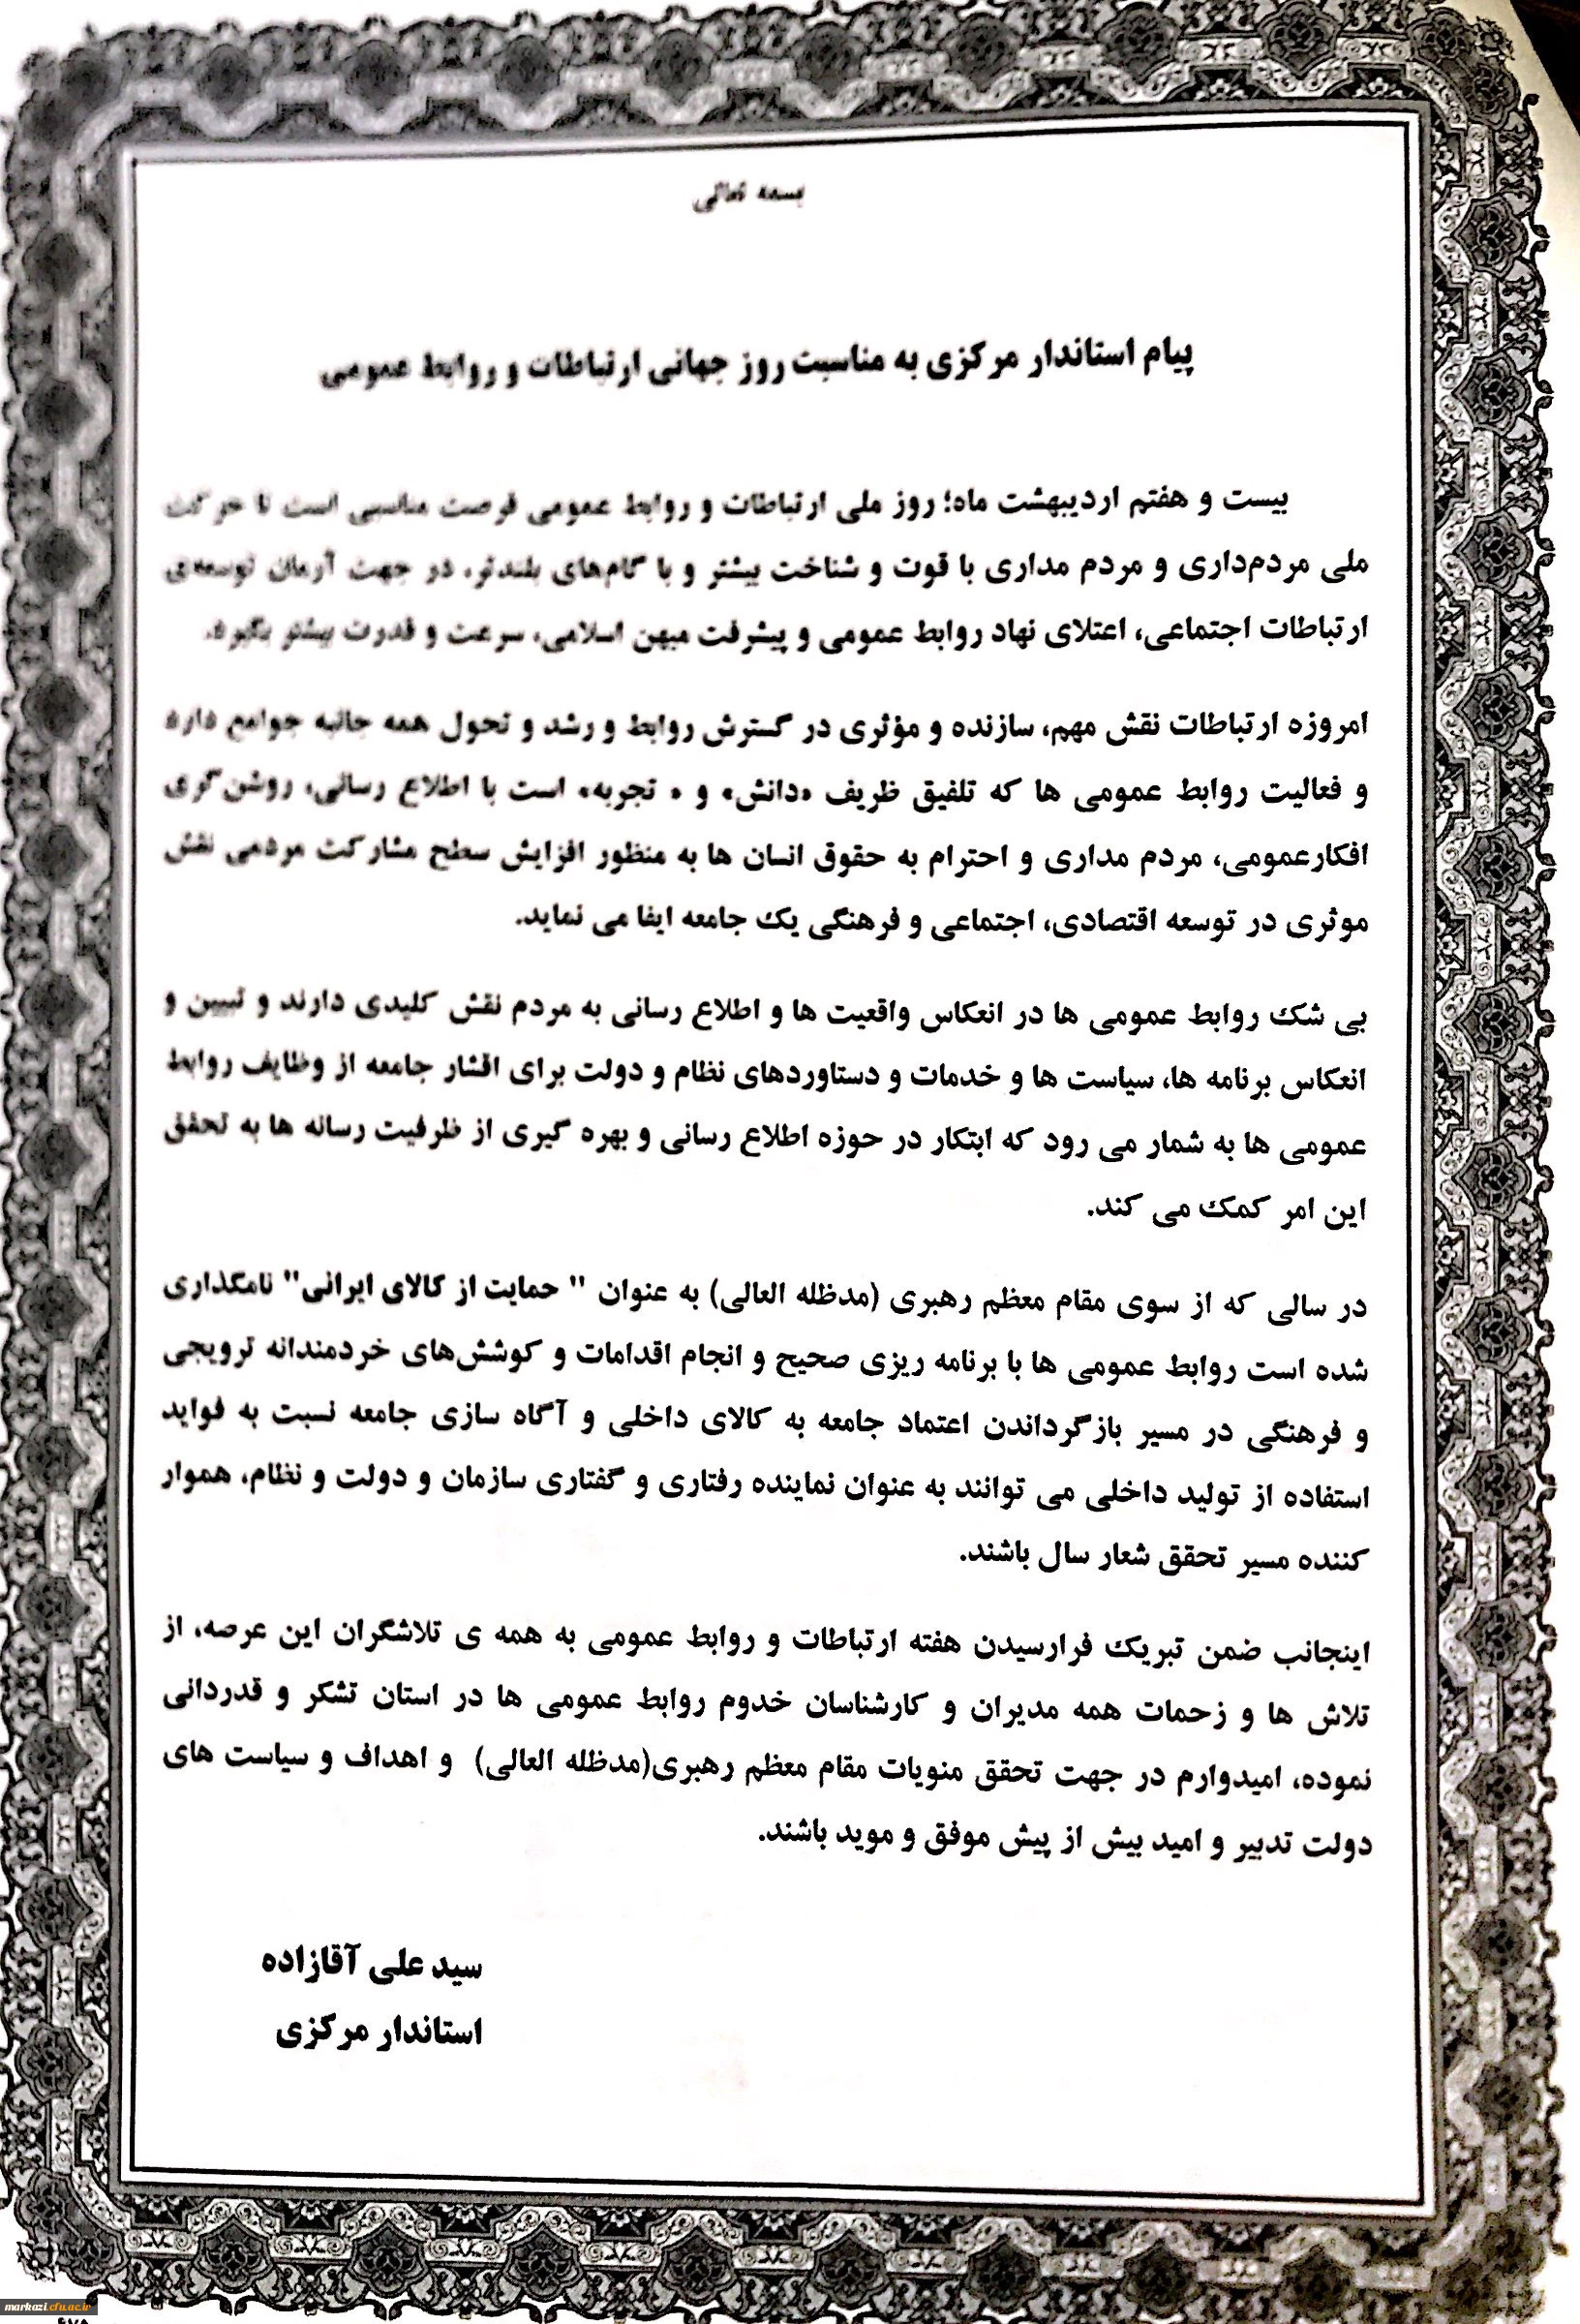 بسمه تعالی
پیام استاندار مرکزی به مناسبت روز جهانی ارتباطات و روابط عمومی
بیست و هفتم اردیبهشت ماه؛ روز ملی ارتباطات و روابط عمومی فرصت مناسبی است تا حرکت
ملی مردم‌داری و مردم مداری با قوت و شناخت بیشتر و با گام‌های بلندتر، در جهت آرمان توسعه‌ی
ارتباطات اجتماعی، اعتلای نهاد روابط عمومی و پیشرفت میهن اسلامی، سرعت و قدرت بیشتر بگیرد.
امروزه ارتباطات نقش مهم، سازنده و مؤثری در گسترش روابط و رشد و تحول همه جانبه جوامع دارد
و فعالیت روابط عمومی ها که تلفیق ظریف «دانش» و « تجربه» است با اطلاع رسانی، روشن‌گری
افکارعمومی، مردم مداری و احترام به حقوق انسان ها به منظور افزایش سطح مشارکت مردمی نقش
موثری در توسعه اقتصادی، اجتماعی و فرهنگی یک جامعه ایفا می نماید.
بی شک روابط عمومی ها در انعکاس واقعیت ها و اطلاع رسانی به مردم نقش کلیدی دارند و تبیین و
انعکاس برنامه ها، سیاست ها و خدمات و دستاوردهای نظام و دولت برای اقشار جامعه از وظایف روابط
عمومی ها به شمار می رود که ابتکار در حوزه اطلاع رسانی و بهره گیری از ظرفیت رسانه ها به تحقق
این امر کمک می کند.
در سالی که از سوی مقام معظم رهبری (مدظله العالی) به عنوان " حمایت از کالای ایرانی" نامگذاری
شده است روابط عمومی ها با برنامه ریزی صحیح و انجام اقدامات و کوشش‌های خردمندانه ترویجی
و فرهنگی در مسیر بازگرداندن اعتماد جامعه به کالای داخلی و آگاه سازی جامعه نسبت به فواید
استفاده از تولید داخلی می توانند به عنوان نماینده رفتاری و گفتاری سازمان و دولت و نظام، هموار
کننده مسیر تحقق شعار سال باشند.
اینجانب ضمن تبریک فرارسیدن هفته ارتباطات و روابط عمومی به همه ی تلاشگران این عرصه، از
تلاش ها و زحمات همه مدیران و کارشناسان خدوم روابط عمومی ها در استان تشکر و قدردانی
نموده، امیدوارم در جهت تحقق منویات مقام معظم رهبری(مدظله العالی) و اهداف و سیاست های
دولت تدبیر و امید بیش از پیش موفق و موید باشند.
سید علی آقازاده
استاندار مرکزی
markazi.cfu.ac.ir